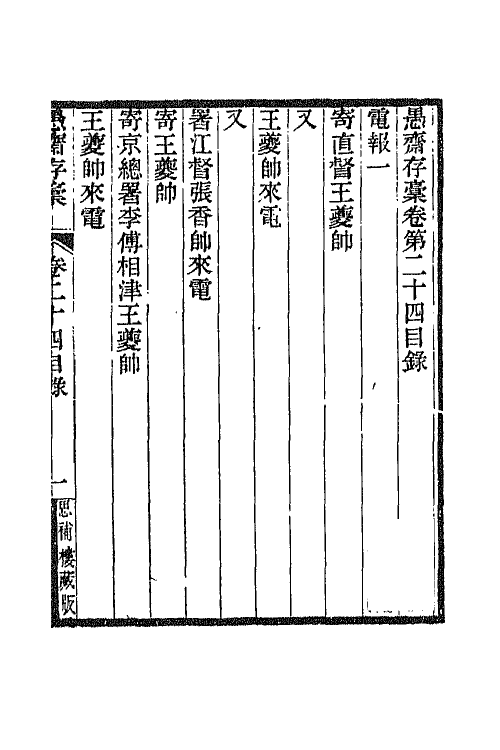 愚齋存稾卷第二十四目錄
電報一
寄直督王夔帥
又
王夔帥來電
又
署江督張香帥來電
寄王夔帥
寄京總署李傅相津王夔帥
王夔帥來電
愚齋存稾
卷二十四目錄
一
思補樓藏版